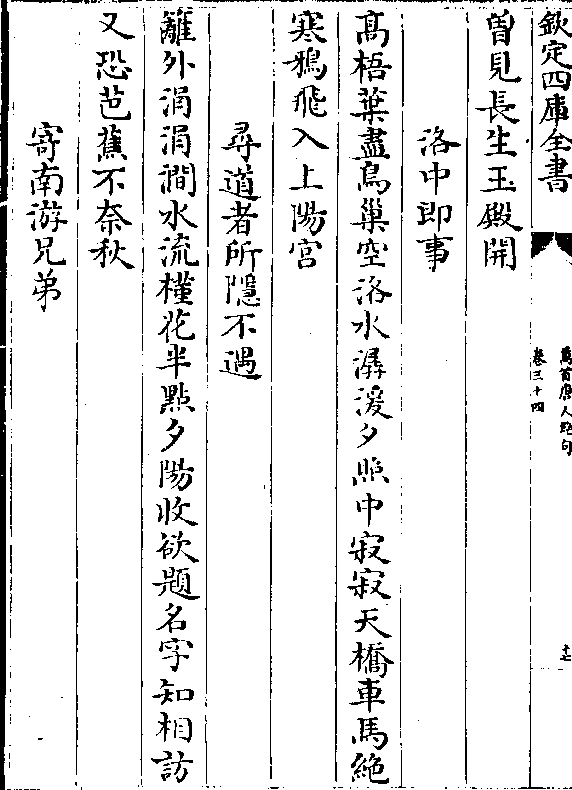 欽定四庫全書
萬首唐人絶句
卷三十四
十七
曽見長生玉殿開
洛中即事
髙梧葉盡鳥巢空洛水潺湲夕照中寂寂天橋車馬絶
寒鴉飛入上陽宫
尋道者所隱不遇
籬外涓涓澗水流槿花半㸃夕陽收欲題名字知相訪
又恐芭蕉不奈秋
寄南游兄弟